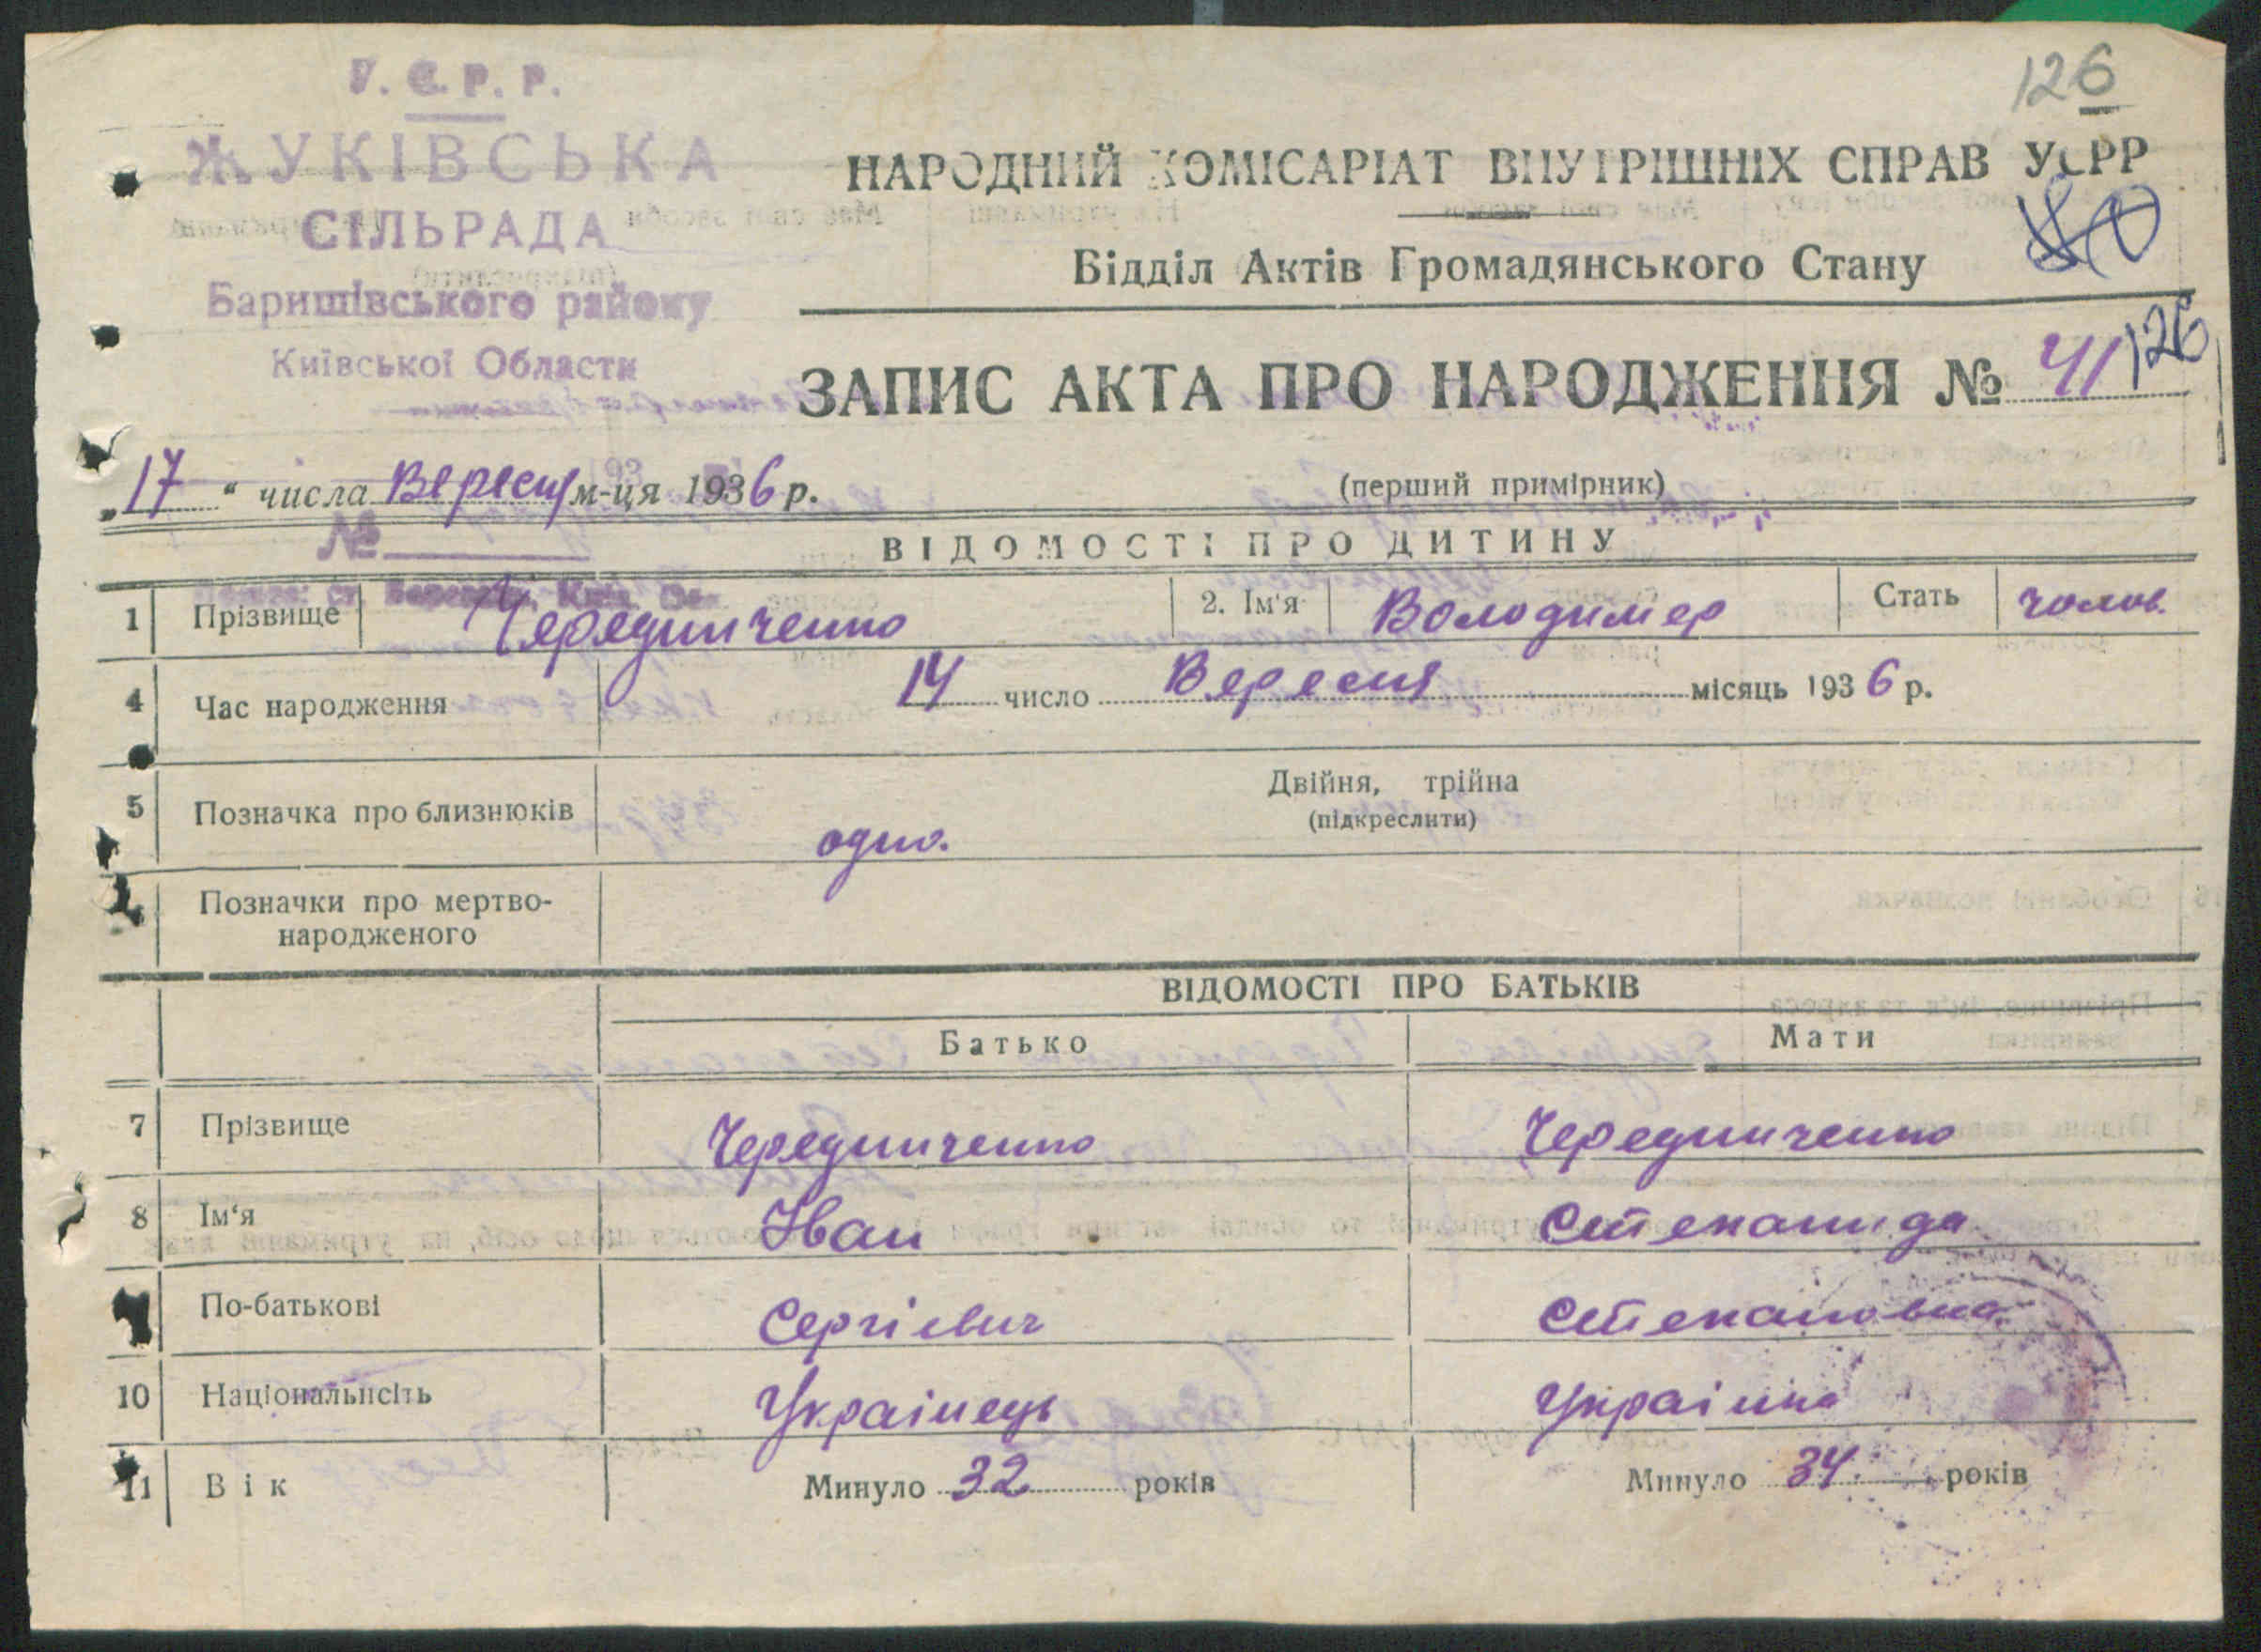 126
У.С.Р.Р.
ЖУКІВСЬКА
СІЛЬРАДА
Баришівського району
Київської Области
№
НАРОДНИЙ КОМІСАРІАТ ВНУТРІШНІХ СПРАВ УСРР
Відділ Актів Громадянського Стану
ЗАПИС АКТА ПРО НАРОДЖЕННЯ № 41 126
„17“ числа Вересня м-ця 1936 р.
(перший примірник)
ВІДОМОСТІ ПРО ДИТИНУ
1 Прізвище Чередниченко 2. Ім'я Володимер Стать чолов.
4 Час народження 14 число Вересня місяць 1936 р.
5 Позначка про близнюків одно. Двійня, трійна
(підкреслити)
Позначки про мертво-
народженого
ВІДОМОСТІ ПРО БАТЬКІВ
Батько Мати
7 Прізвище Чередниченко Чередниченко
8 Ім'я Іван Степанида
По-батькові Сергієвич Степановна
10 Національність Украінець Украінка
11 Вік Минуло 32 років Минуло 34 років